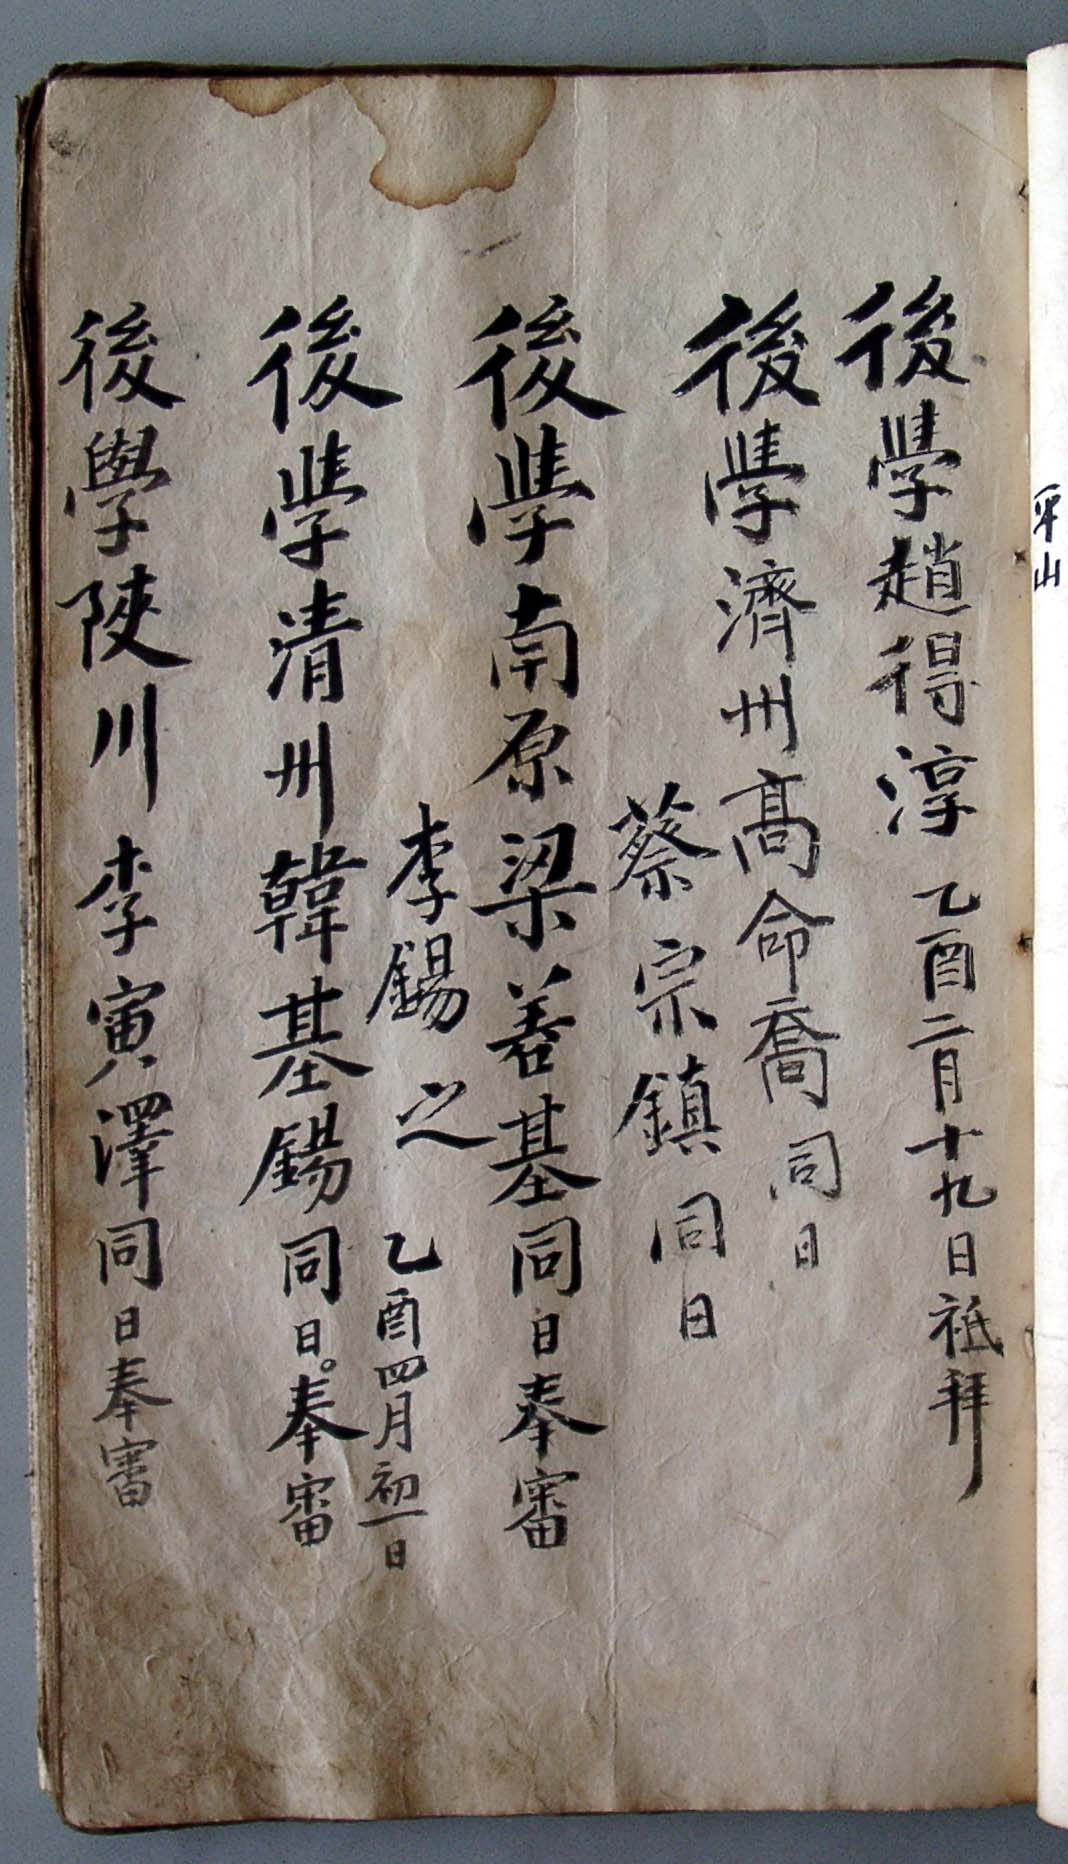 平山
後學趙得淳 乙酉二月十九日祗拜
後學濟州高命喬 同日
蔡宗鎮 同日
後學南原梁善基同日奉審
李錫之 乙酉四月初一日
後學清州韓基錫同日。奉審
後學陜川李寅澤同日奉審